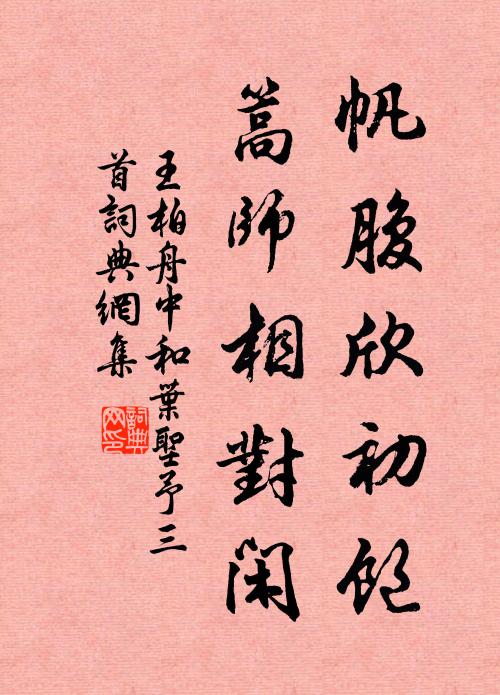 帆腹欣初飽
篙師相對閑
王柏舟中和葉聖予三
首詞典網集
詞典网印